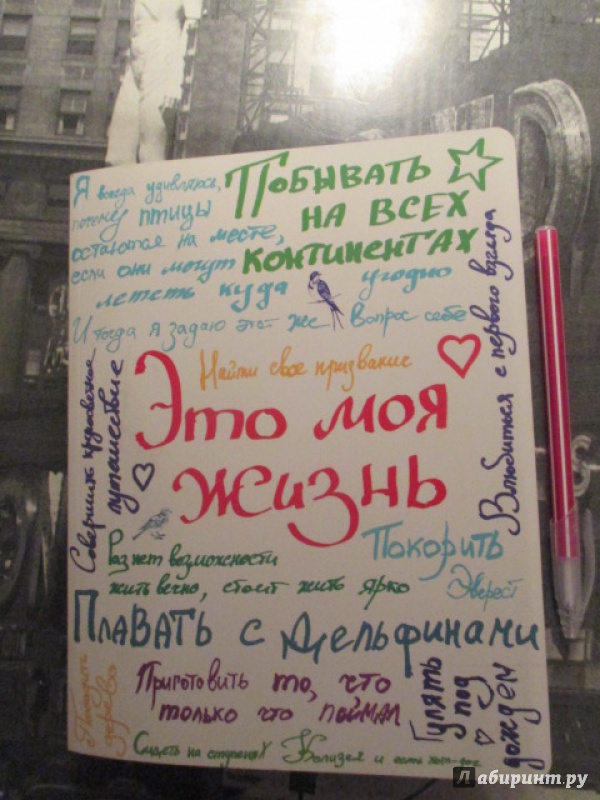 Я всегда удивляюсь,
почему птицы
остаются на месте,
если они могут
лететь куда угодно
И тогда я задаю этот же вопрос себе
Побывать
на всех
континентах
Влюбиться с первого взгляда
Найти свое призвание
Совершить кругосветное
путешествие
Это моя
жизнь
Раз нет возможности
жить вечно, стоит жить ярко
Покорить
Эверест
Плавать с дельфинами
Посадить
дерево
Приготовить то, что
только что поймал
Гулять
под
дождем
Сидеть на ступенях Колизея и есть хот-дог
Лабиринт.ру